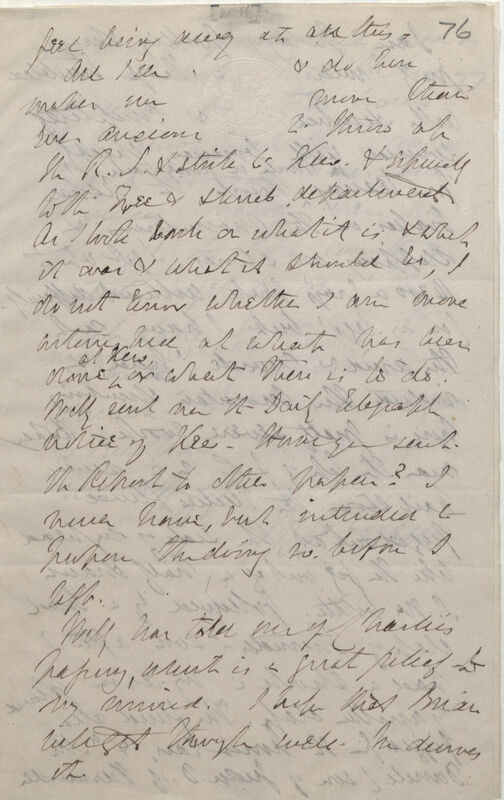 76
feel being away at all this.
All I see & do here
makes me more than
ever anxious to throw up
the R. S. & stick to Kew. & especially
both Tree & shrub departments
As I look back on what it is & what
it was & what it should be, I
do not know whether I am more
astonished at what has been
done at Kew, or what there is to do.
sent me the Daily Telegraph
notice of Kew - Have you sent
the Report to other papers? I
never have, but intended to
propose the doing so before I
left.
has told me of Charlie's
, which is a great relief to
my mind. I hope that Brian
will get through well - he deserves
it.